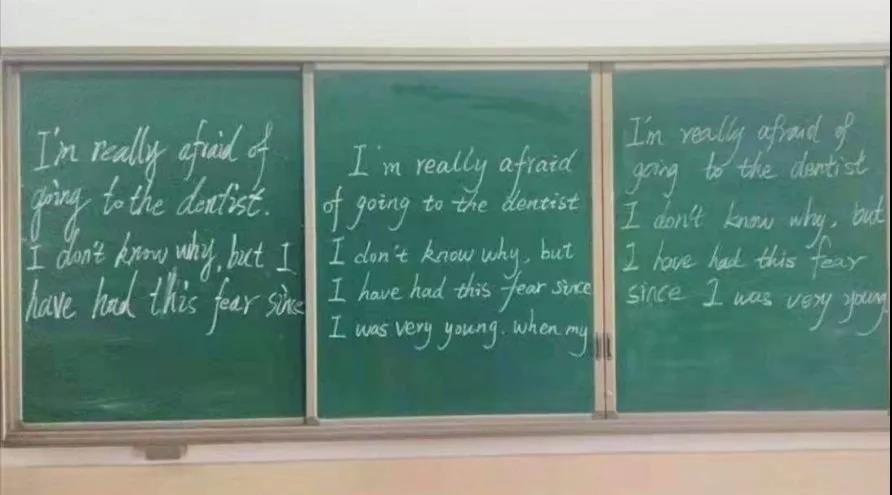 I'm really afraid of
going to the dentist.
I don't know why, but I
have had this fear since
I'm really afraid
of going to the dentist
I don't know why, but
I have had this fear since
I was very young. when my
I'm really afraid of
going to the dentist
I don't know why, but
I have had this fear
since I was very young